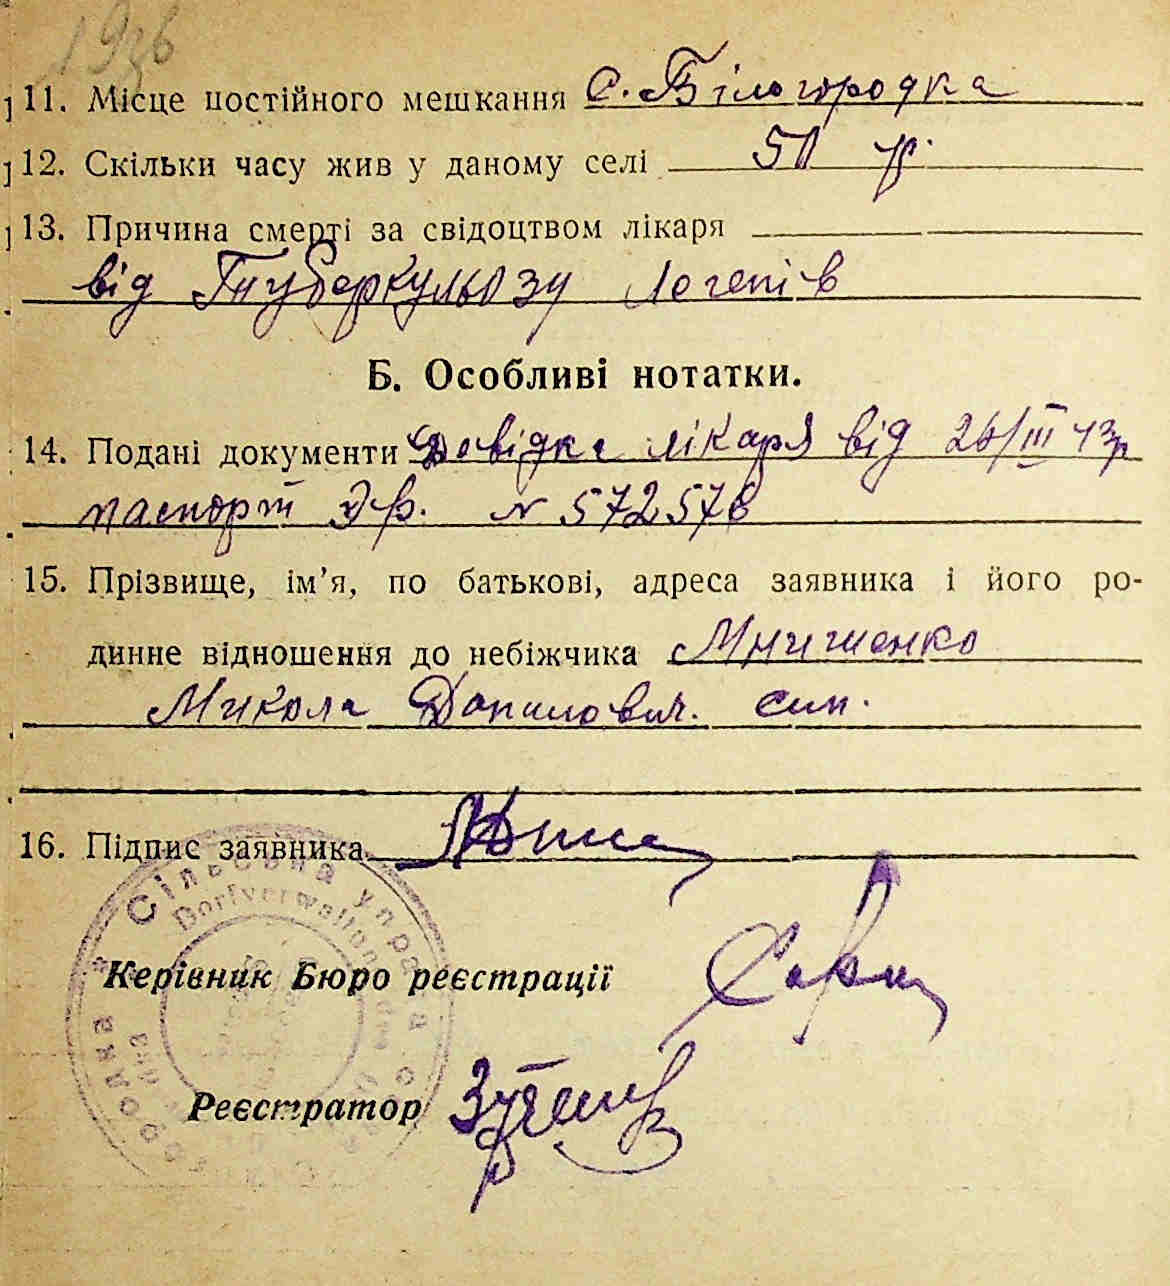 11. Місце постійного мешкання с. Білогородка
12. Скільки часу жив у даному селі 50 р.
13. Причина смерті за свідоцтвом лікаря
від Туберкульозу Логенів
Б. Особливі нотатки.
14. Подані документи Довідка лікаря від 26/III 43р
паспорт № 572578
15. Прізвище, ім’я, по батькові, адреса заявника і його ро-
динне відношення до небіжчика
Микола Данилович. син.
16. Підпис заявника
Сільська управа
Dorfverwaltung
Керівник Бюро реєстрації
Реєстратор